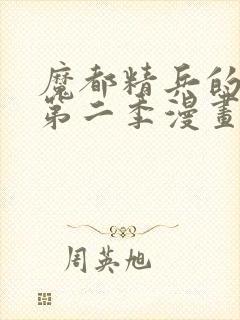 魔都精兵的
第二季漫畫
周英旭